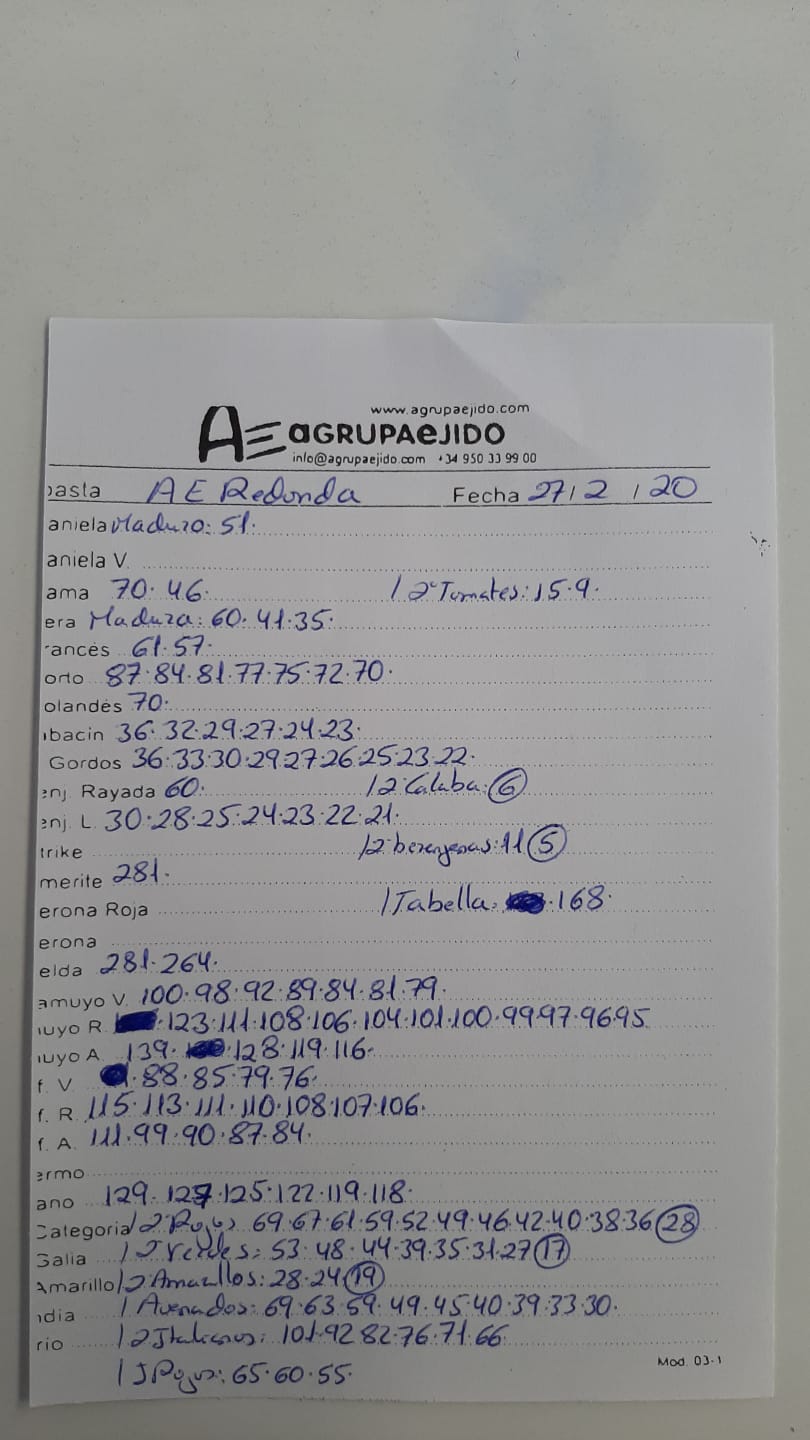 www.agrupaejido.com
AE AGRUPAEJIDO
info@agrupaejido.com +34 950 33 99 00
basta AE Redonda Fecha 27/2/20
aniela Maduro: 51.
aniela V.
ama 70.46. /2ª Tomates: 15.9.
era Madura: 60.41.35.
rancés 61.57.
orto 87.84.81.77.75.72.70.
olandés 70.
bacin 36.32.29.27.24.23.
Gordos 36.33.30.29.27.26.25.23.22.
enj. Rayada 60. /2ª Calaba: 6
enj. L. 30.28.25.24.23.22.21.
trike /2ª berenjenas: 11 5
merite 281.
erona Roja /Tabella: .168.
erona
elda 281.264.
amuyo V. 100.98.92.89.84.81.79.
uyo R. .123.111.108.106.104.101.100.99.97.96.95
uyo A. 139. .128.119.116.
f. V .88.85.79.76.
f. R. 115.113.111.110.108.107.106.
f. A. 111.99.90.87.84.
ermo
ano 129.127.125.122.119.118.
Categoria /2 Rojos 69.67.61.59.52.49.46.42.40.38.36 28
Galia /2 Verdes: 53.48.44.39.35.31.27 17
Amarillo /2 Amarillos: 28.24 19
ndia / Asurados: 69.63.59.49.45.40.39.33.30.
rio /2 Italianos: 101.92.82.76.71.66.
/ J Rojos: 65.60.55.
Mod. 03-1